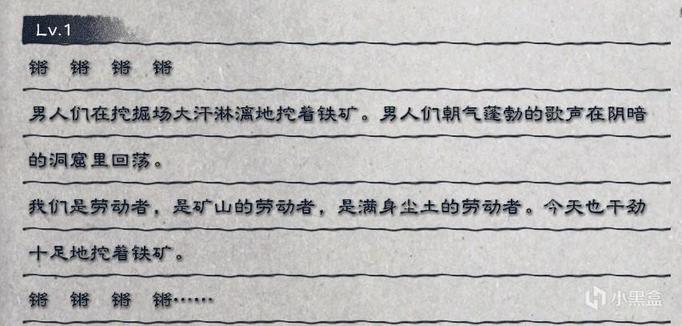 Lv.1
锵 锵 锵 锵
男人们在挖掘场大汗淋漓地挖着铁矿。男人们朝气蓬勃的歌声在阴暗
的洞窟里回荡。
我们是劳动者，是矿山的劳动者，是满身尘土的劳动者。今天也干劲
十足地挖着铁矿。
锵 锵 锵 锵……
小黑盒